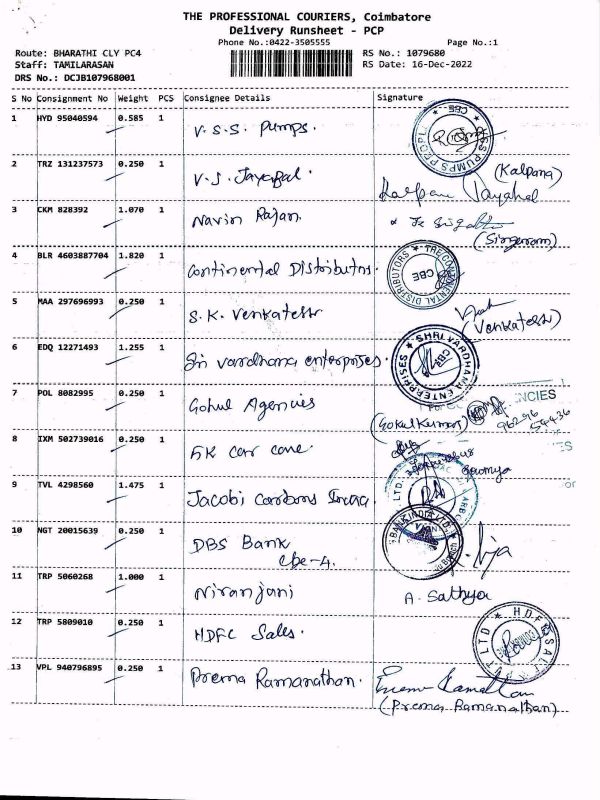 THE PROFESSIONAL COURIERS, Coimbatore
Delivery Runsheet - PCP
Phone No.:0422-3505555 Page No.:1
Route: BHARATHI CLY PC4 RS No.: 1079680
Staff: TAMILARASAN RS Date: 16-Dec-2022
DRS No.: DCJB107968001
S No Consignment No Weight PCS Consignee Details Signature
1 HYD 95040594 0.585 1 V.S.S. Pumps.
CBE
2 TRZ 131237573 0.250 1 V.S. Jayapal.
(Kalpana)
Kalpana Jayapal
3 CKM 828392 1.070 1 Navin Rajan.
(Singaram)
4 BLR 4603887704 1.820 1 Continental Distributors.
THE CONTINENTAL DISTRIBUTORS
CBE
5 MAA 297696993 0.250 1 S.K. Venkatessr
(Venkatessr)
6 EDQ 12271493 1.255 1 Sri vardhana enterprises.
SHRI VARDHANA ENTERPRISES
CBE
7 POL 8082995 0.250 1 Gokul Agencies
(Gokul Kumar)
NCIES
96296
54436
8 IXM 502739016 0.250 1 5K car care.
Sowmya
9 TVL 4298560 1.475 1 Jacobi Carbons India
10 NGT 20015639 0.250 1 DBS Bank
Cbe-4.
11 TRP 5060268 1.000 1 Niranjani
A. Sathya
12 TRP 5809010 0.250 1 HDFC Sales.
13 VPL 940796895 0.250 1 Prema Ramanathan.
(Prema Ramanathan)